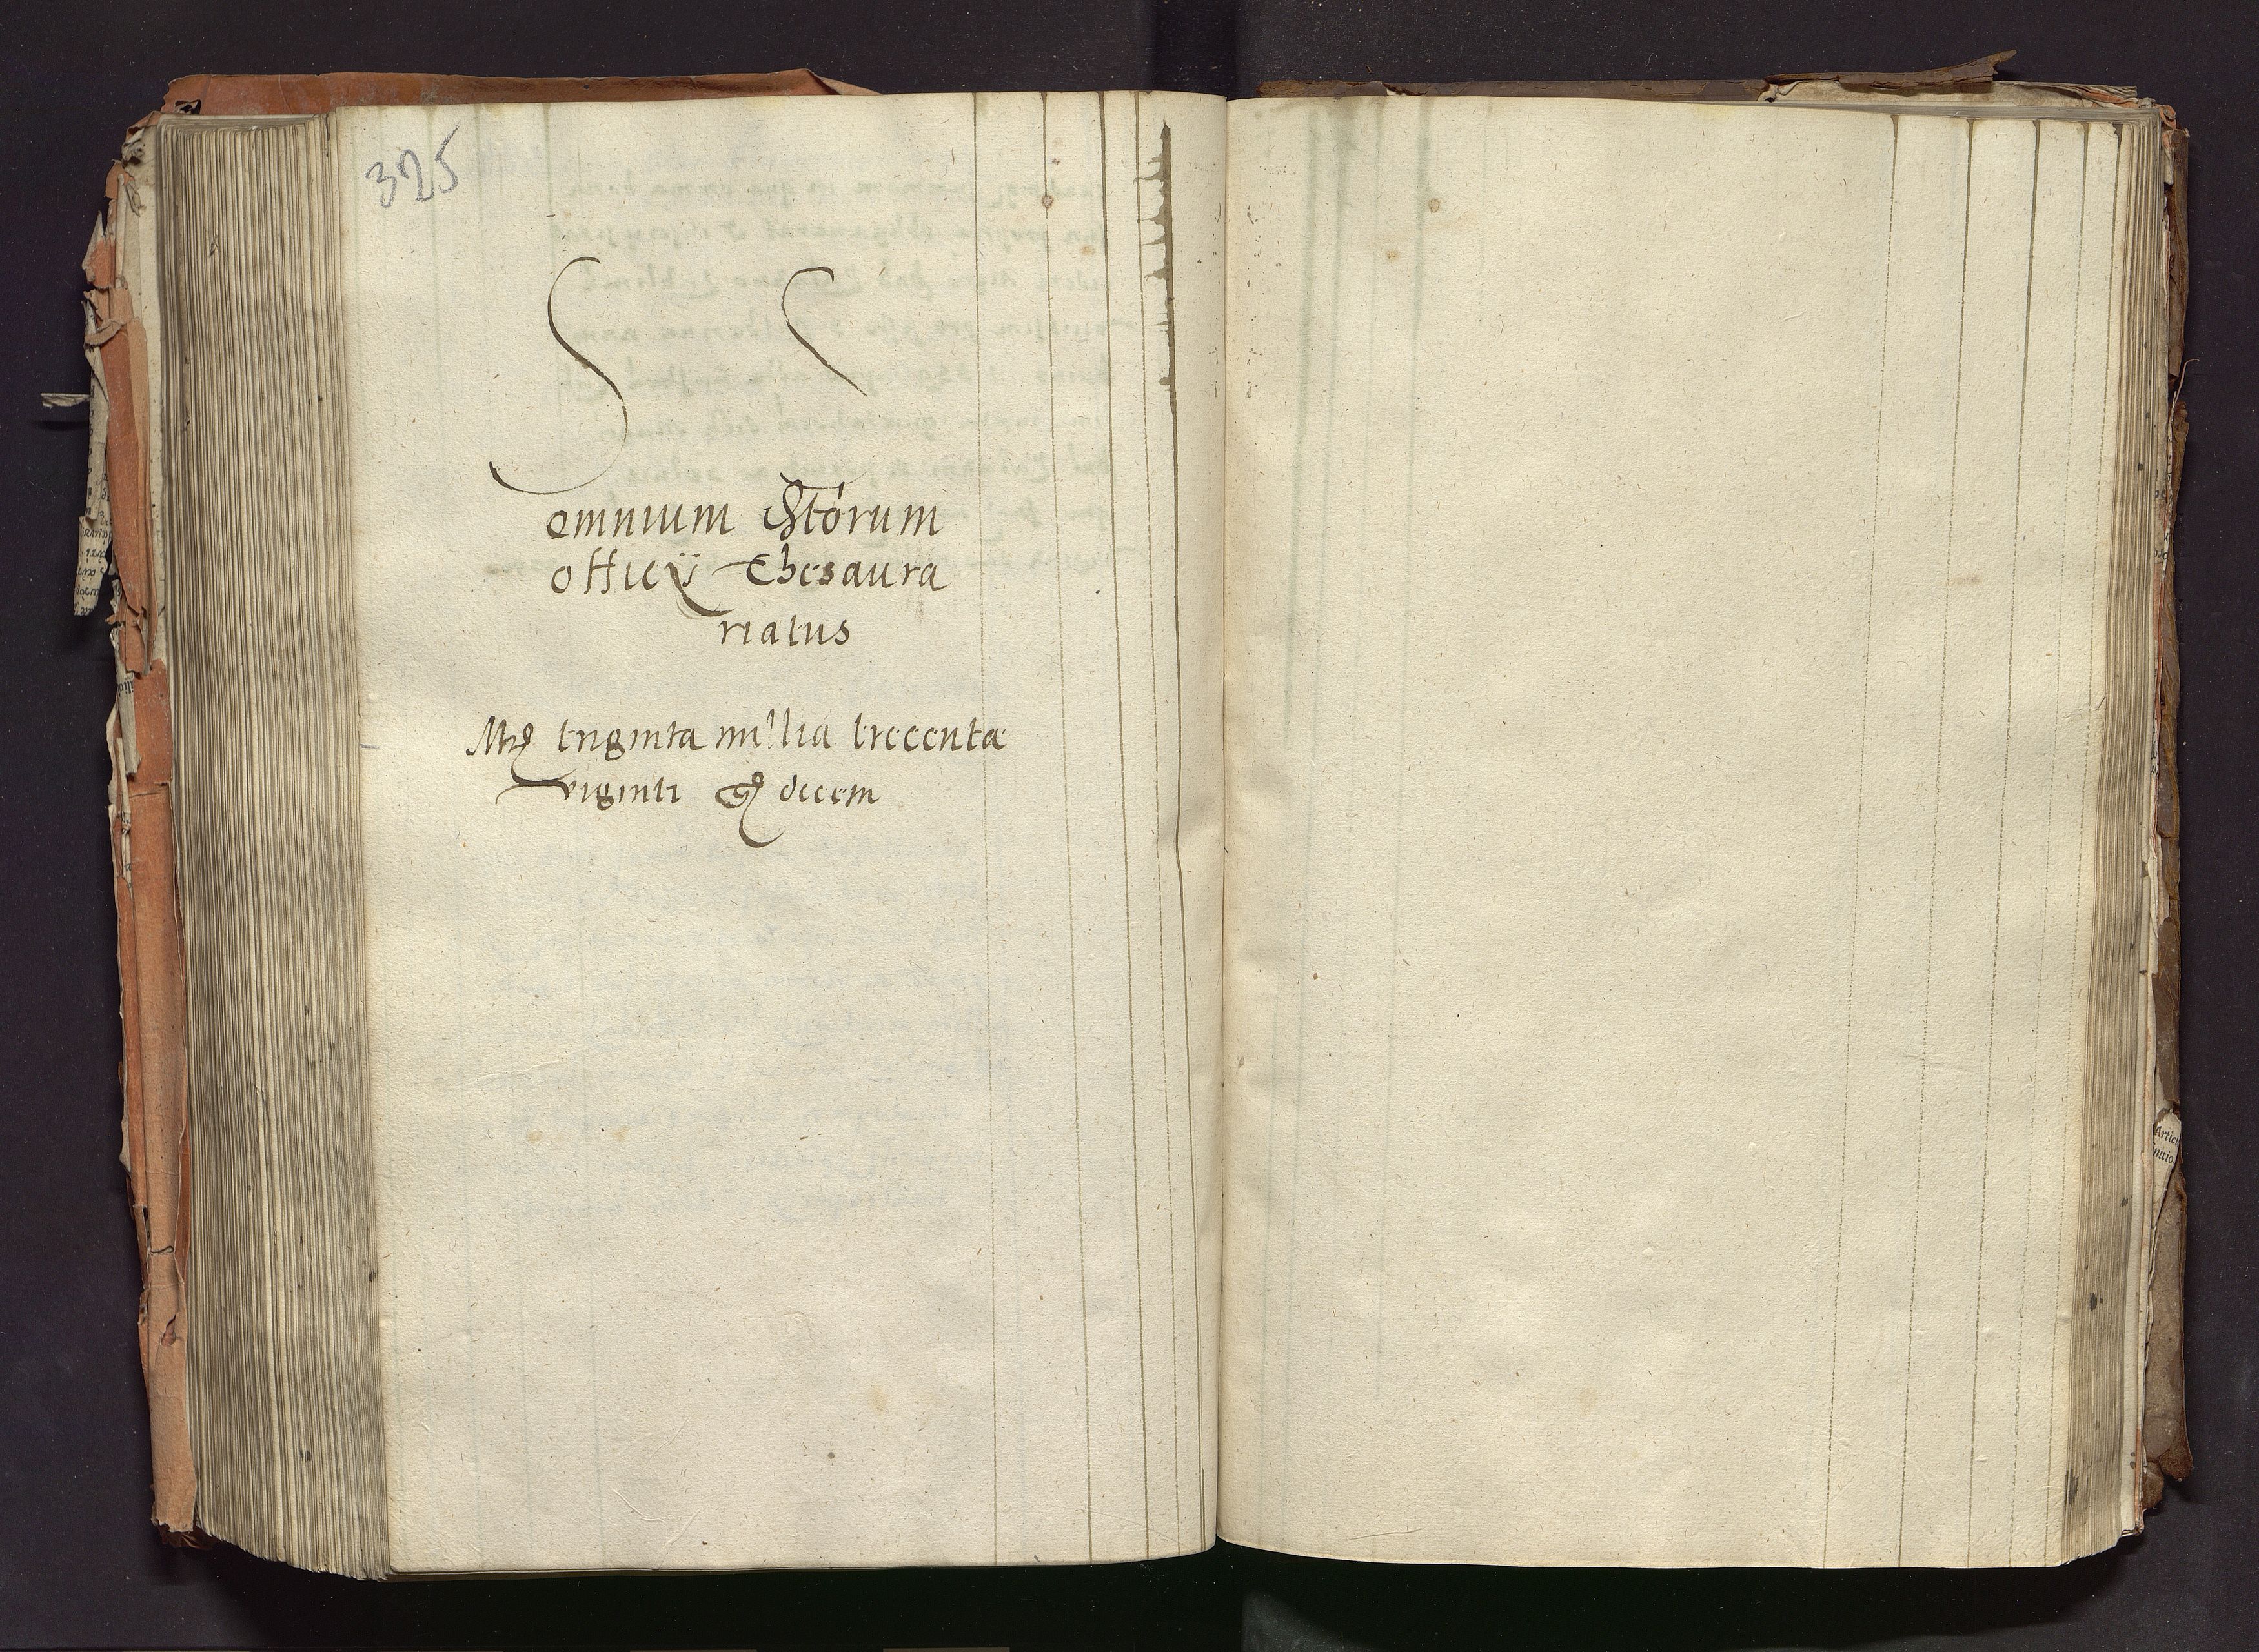 325
S S
omnium istorum
officij Thesaura
riatus
Mrc triginta millia trecenta
viginti gr decem